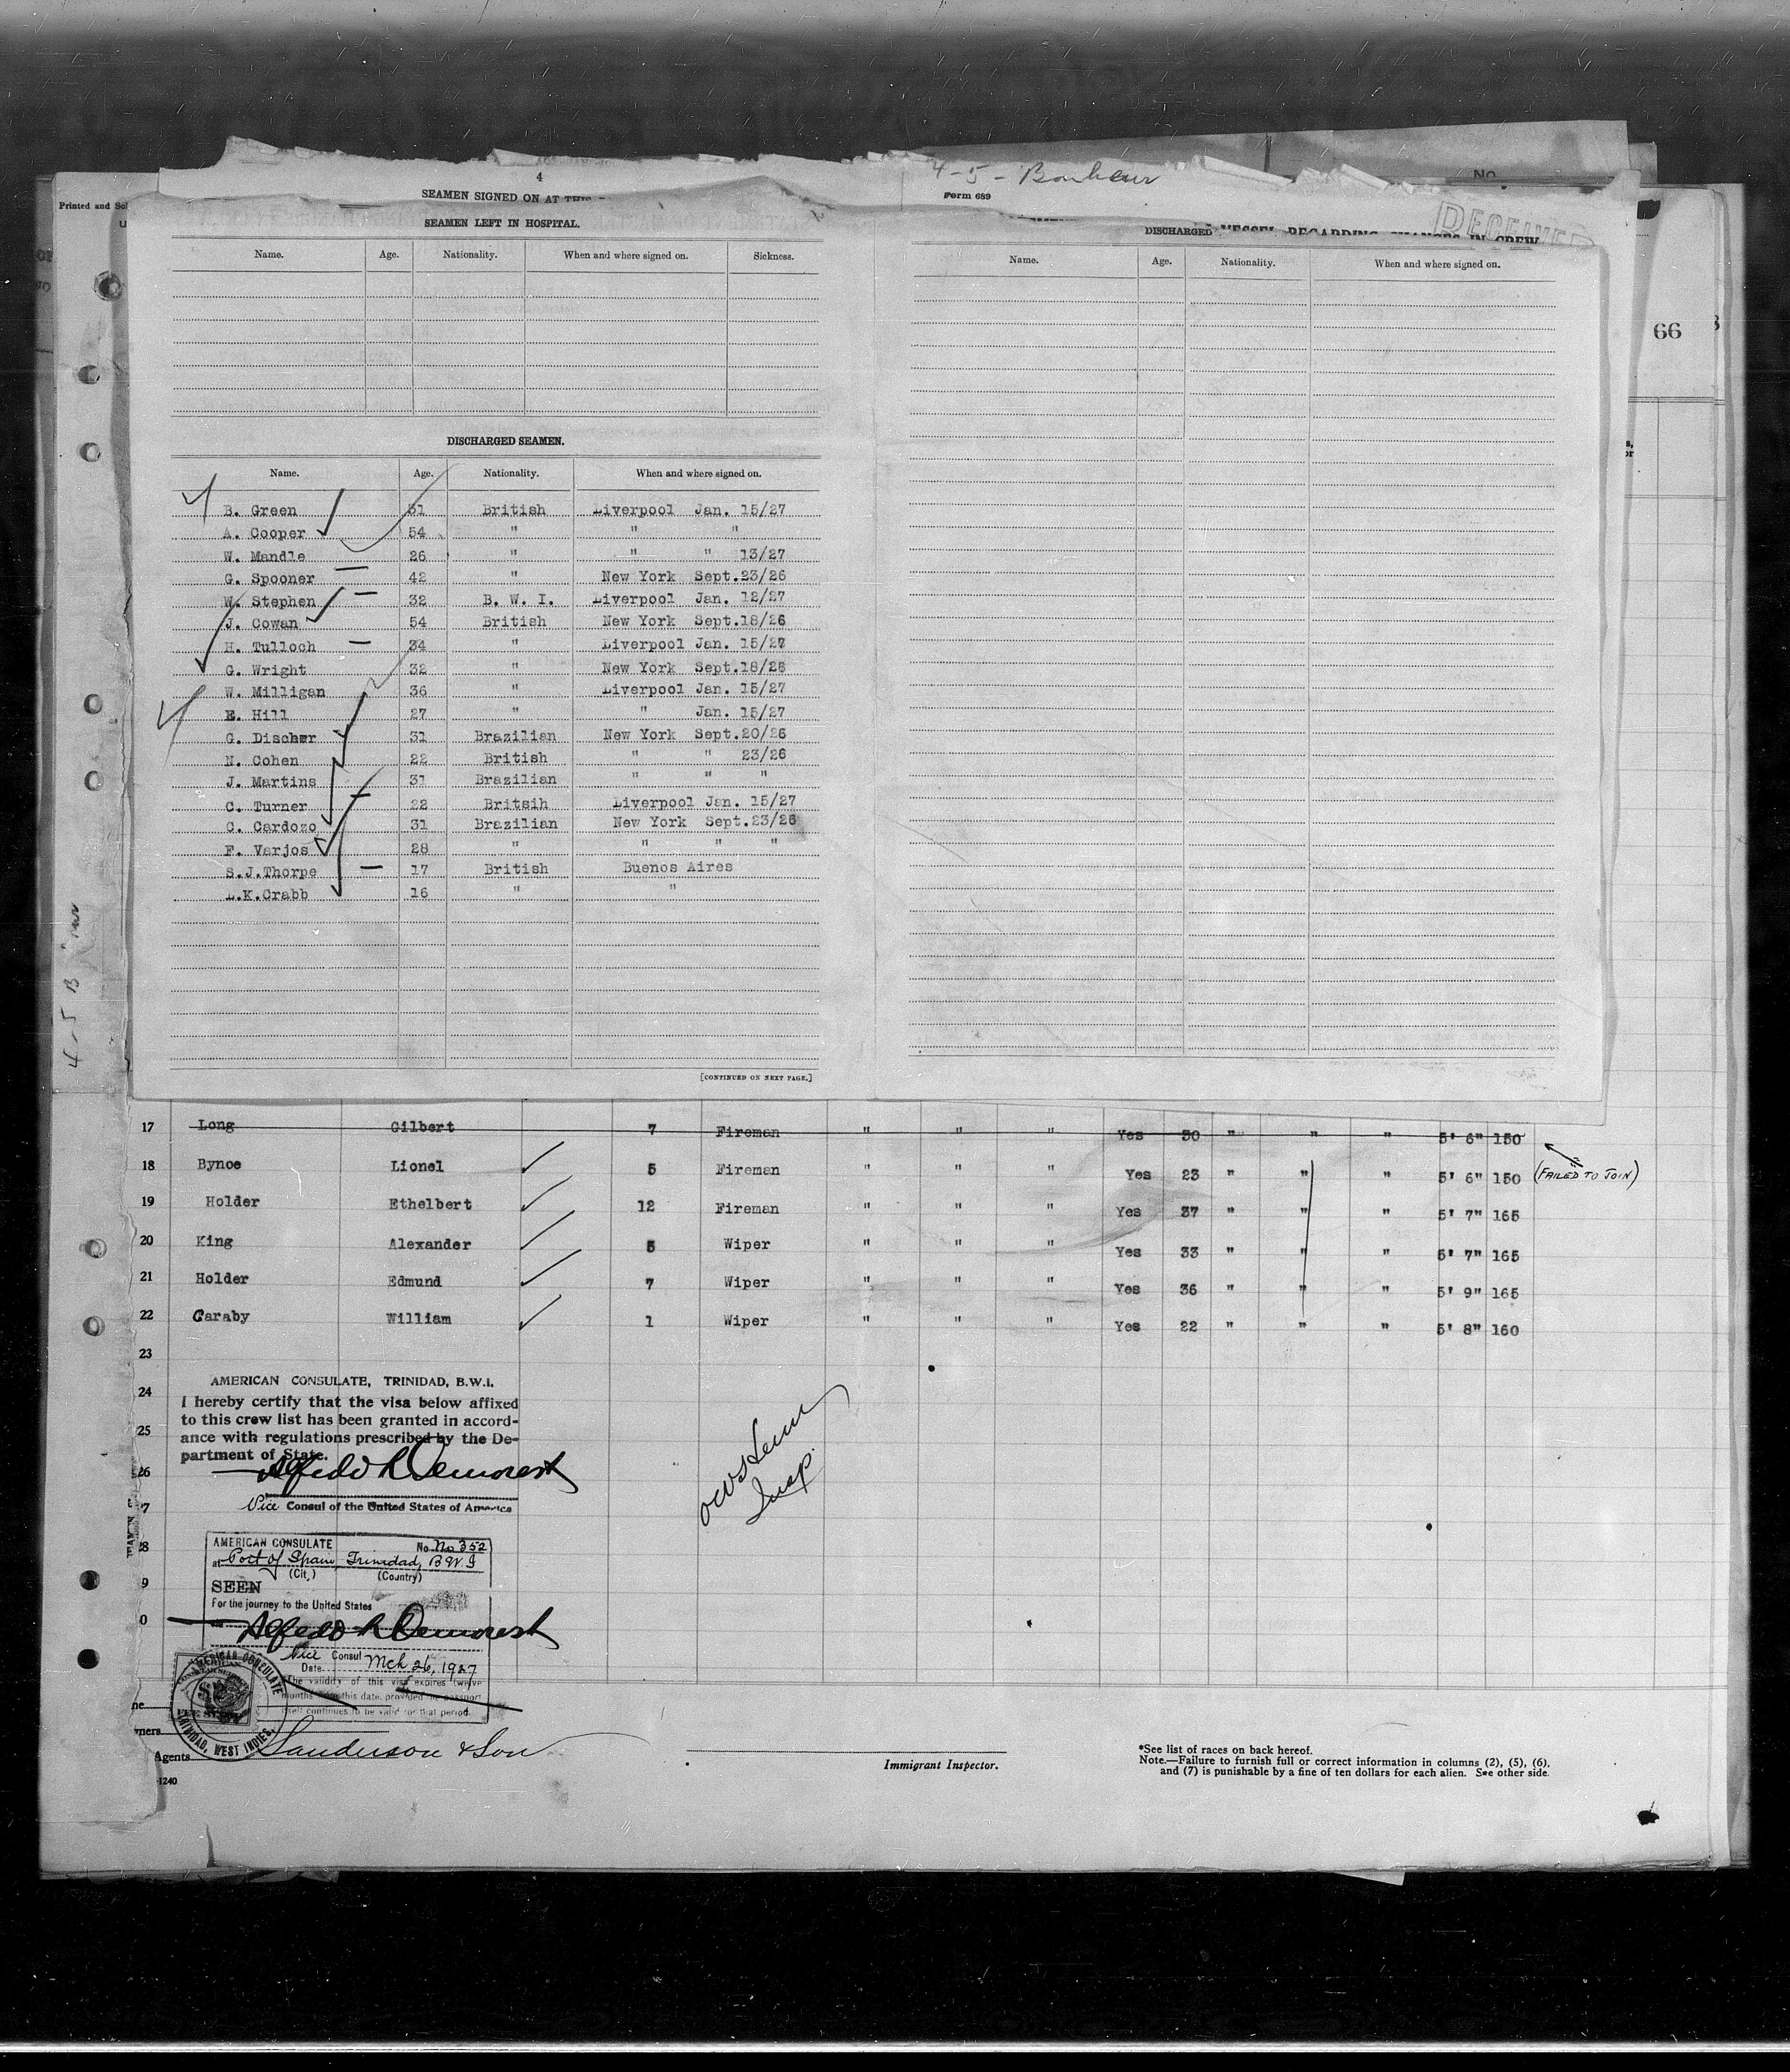 4-5- Bonheur
No.
4
Printed and
SEAMEN SIGNED ON AT THIS
Form 689
SEAMEN LEFT IN HOSPITAL.
DISCHARGED
VESSEL REGARDING CHANGES IN CREW
Name. Age. Nationality. When and where signed on. Sickness.
Name. Age. Nationality. When and where signed on.
66
DISCHARGED SEAMEN.
Name. Age. Nationality. When and where signed on.
B. Green 51 British Liverpool Jan. 15/27
A. Cooper 54 " " "
W. Mandle 26 " " " 13/27
G. Spooner 42 " New York Sept.23/26
W. Stephen 32 B. W. I. Liverpool Jan. 12/27
J. Cowan 54 British New York Sept.18/26
H. Tulloch 34 " Liverpool Jan. 15/27
G. Wright 32 " New York Sept.18/26
W. Milligan 36 " Liverpool Jan. 15/27
E. Hill 27 " " Jan. 15/27
G. Discher 31 Brazilian New York Sept.20/26
N. Cohen 22 British " " 23/26
J. Martins 31 Brazilian " " "
C. Turner 22 Britsih Liverpool Jan. 15/27
C. Cardozo 31 Brazilian New York Sept.23/26
F. Varjos 28 " " " "
S.J.Thorpe 17 British Buenos Aires
L.K.Crabb 16 " "
[CONTINUED ON NEXT PAGE.]
17 Long Gilbert 7 Fireman " " " Yes 30 " " " 5' 6" 150
18 Bynoe Lionel 5 Fireman " " " Yes 23 " " " 5' 6" 150 (FAILED TO JOIN)
19 Holder Ethelbert 12 Fireman " " " Yes 37 " " " 5' 7" 165
20 King Alexander 5 Wiper " " " Yes 33 " " " 5' 7" 165
21 Holder Edmund 7 Wiper " " " Yes 36 " " " 5' 9" 165
22 Caraby William 1 Wiper " " " Yes 22 " " " 5' 8" 160
23
24
25
26
AMERICAN CONSULATE, TRINIDAD, B.W.I.
I hereby certify that the visa below affixed
to this crew list has been granted in accord-
ance with regulations prescribed by the De-
partment of State.
Alfredo R Demorest
Vice Consul of the United States of America
Insp.
AMERICAN CONSULATE No. No 352
at Port of Spain, Trinidad, B W I
(City) (Country)
SEEN
For the journey to the United States
Alfredo R Demorest
Vice Consul
Date Mch 26, 1927
The validity of this visa expires twelve
months from this date, provided the passport
itself continues to be valid for that period.
AMERICAN CONSULATE
TRINIDAD, WEST INDIES.
Agents Sanderson & Son
Immigrant Inspector.
*See list of races on back hereof.
Note.—Failure to furnish full or correct information in columns (2), (5), (6),
and (7) is punishable by a fine of ten dollars for each alien. See other side.
-1240